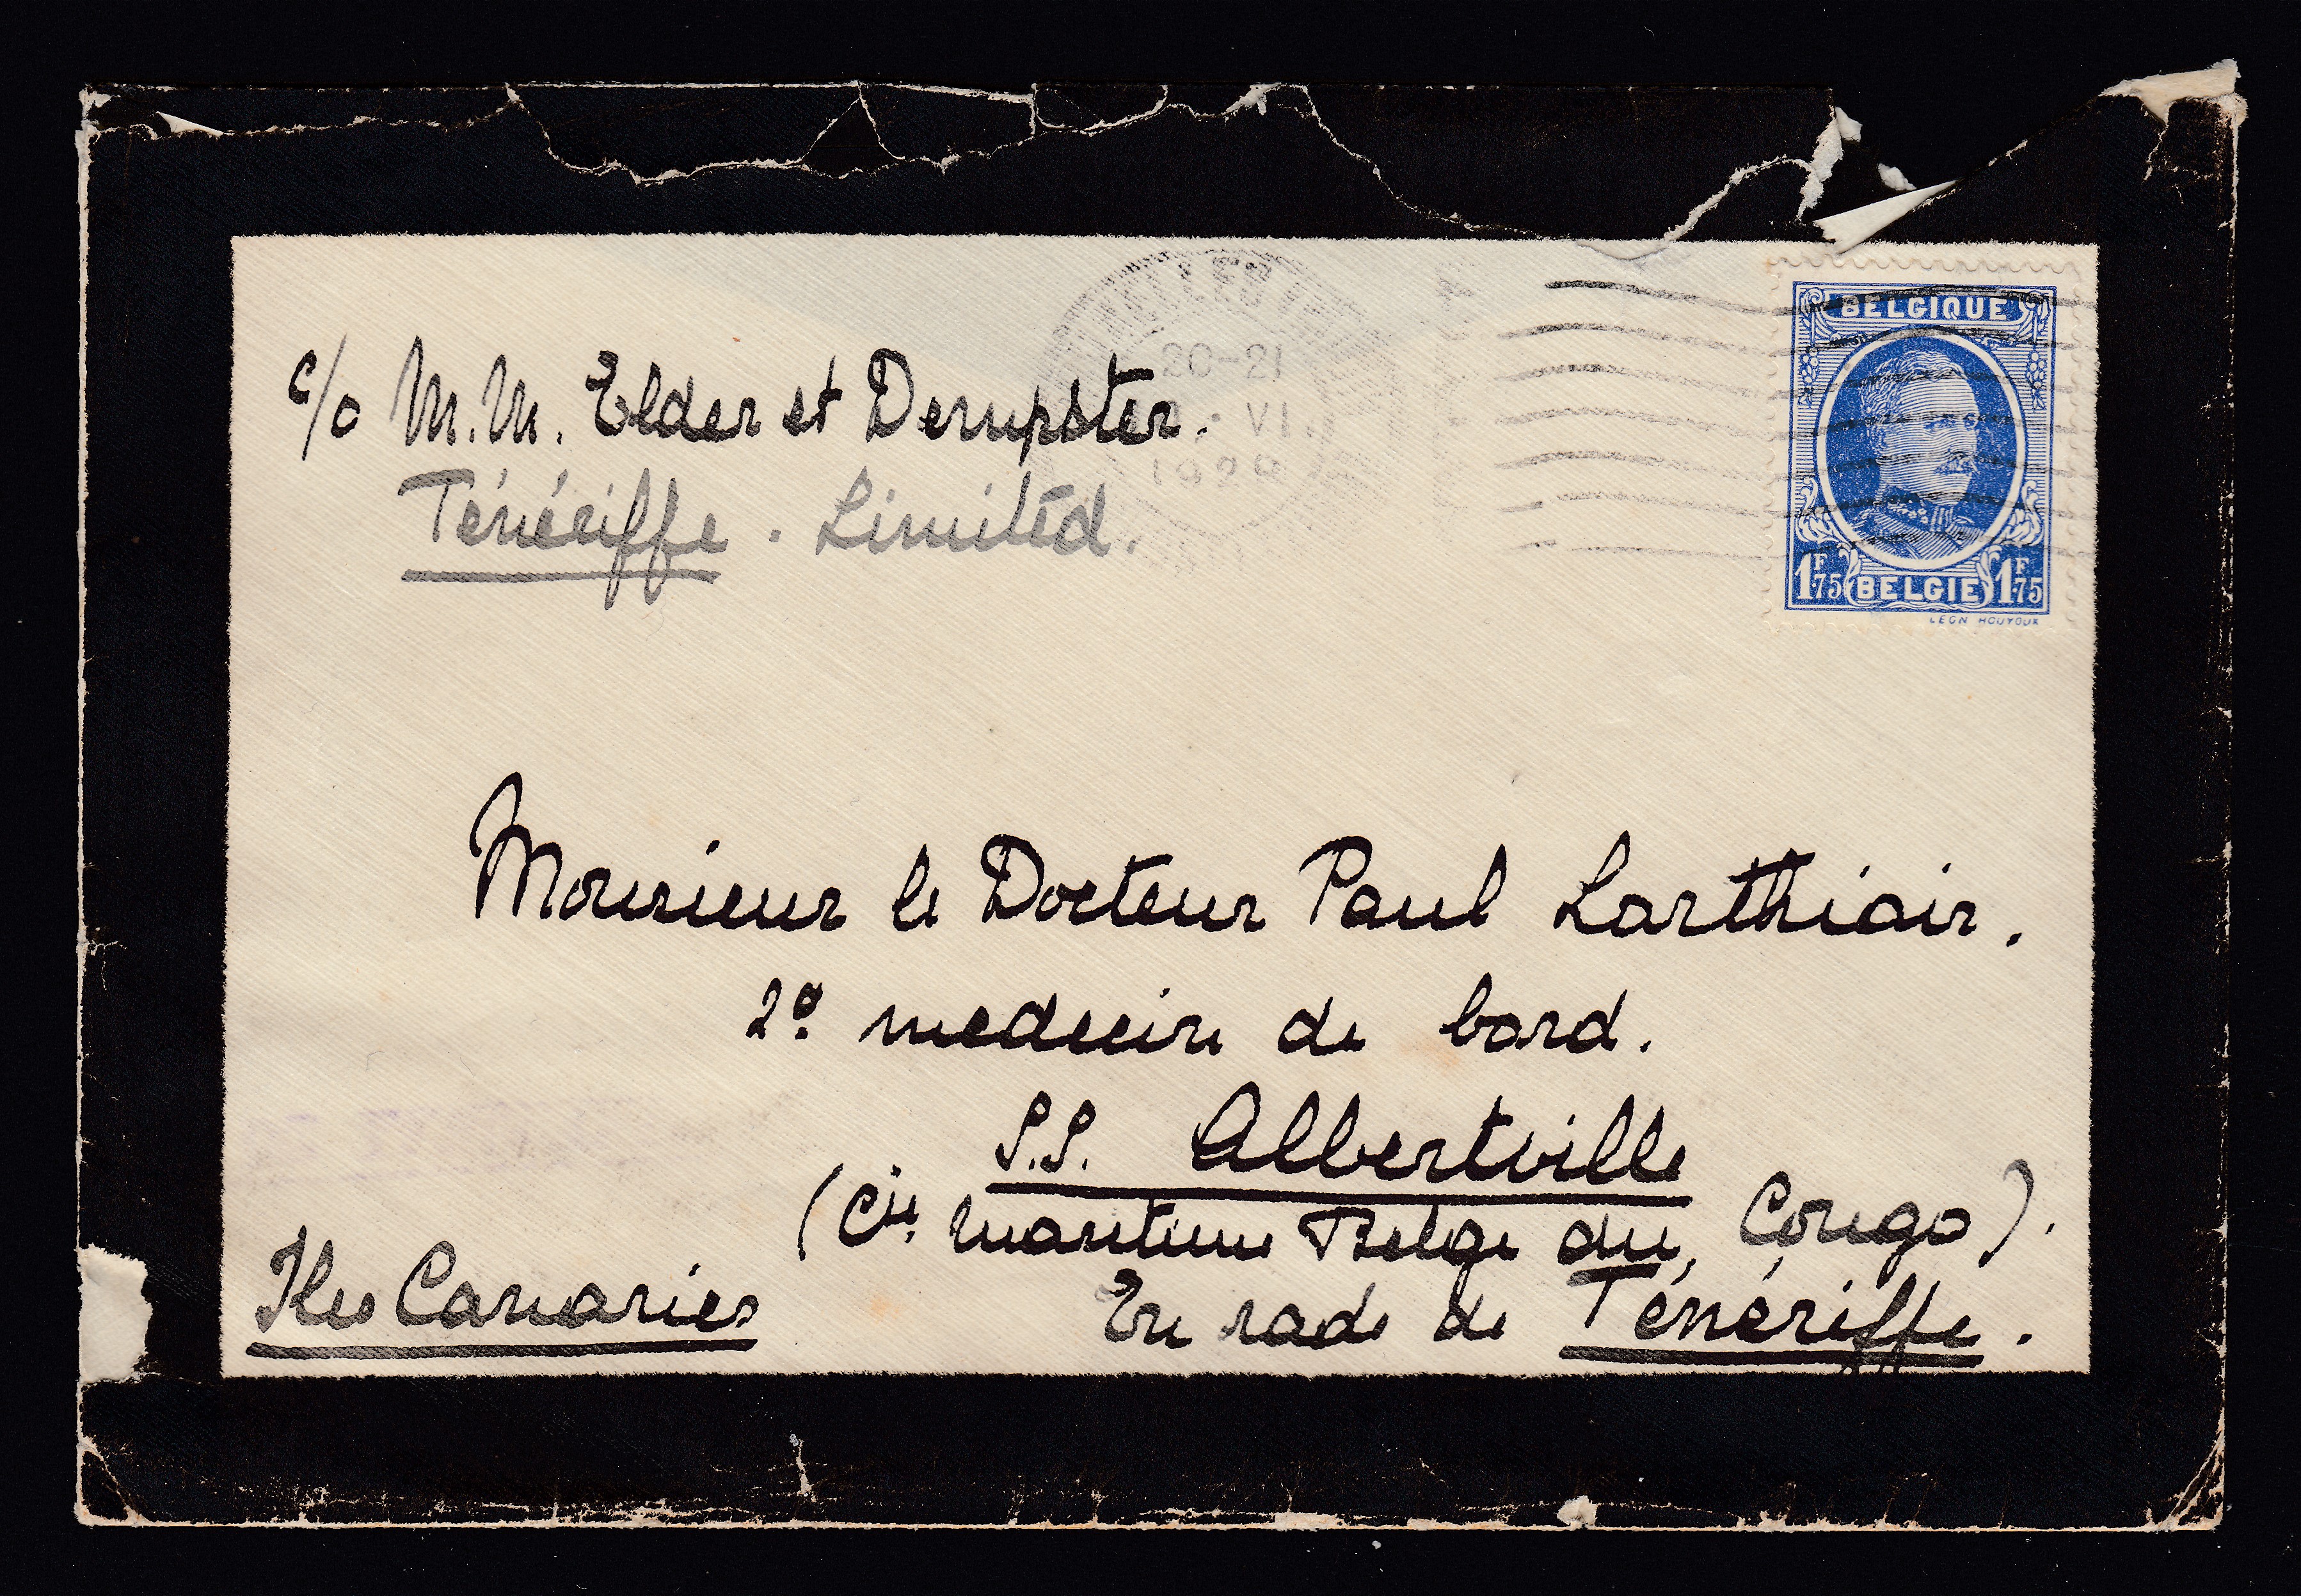 c/o M.M. Elder et Dempster.
Ténériffe. Limited.
20-21
VI
BELGIQUE
1F75 BELGIE 1F75
LEON HOUYOUX
Monsieur le Docteur Paul Larthiair.
2e médecin de bord.
S.S. Albertville
(Cie maritime Belge du Congo).
Iles Canaries
En rade de Ténériffe.